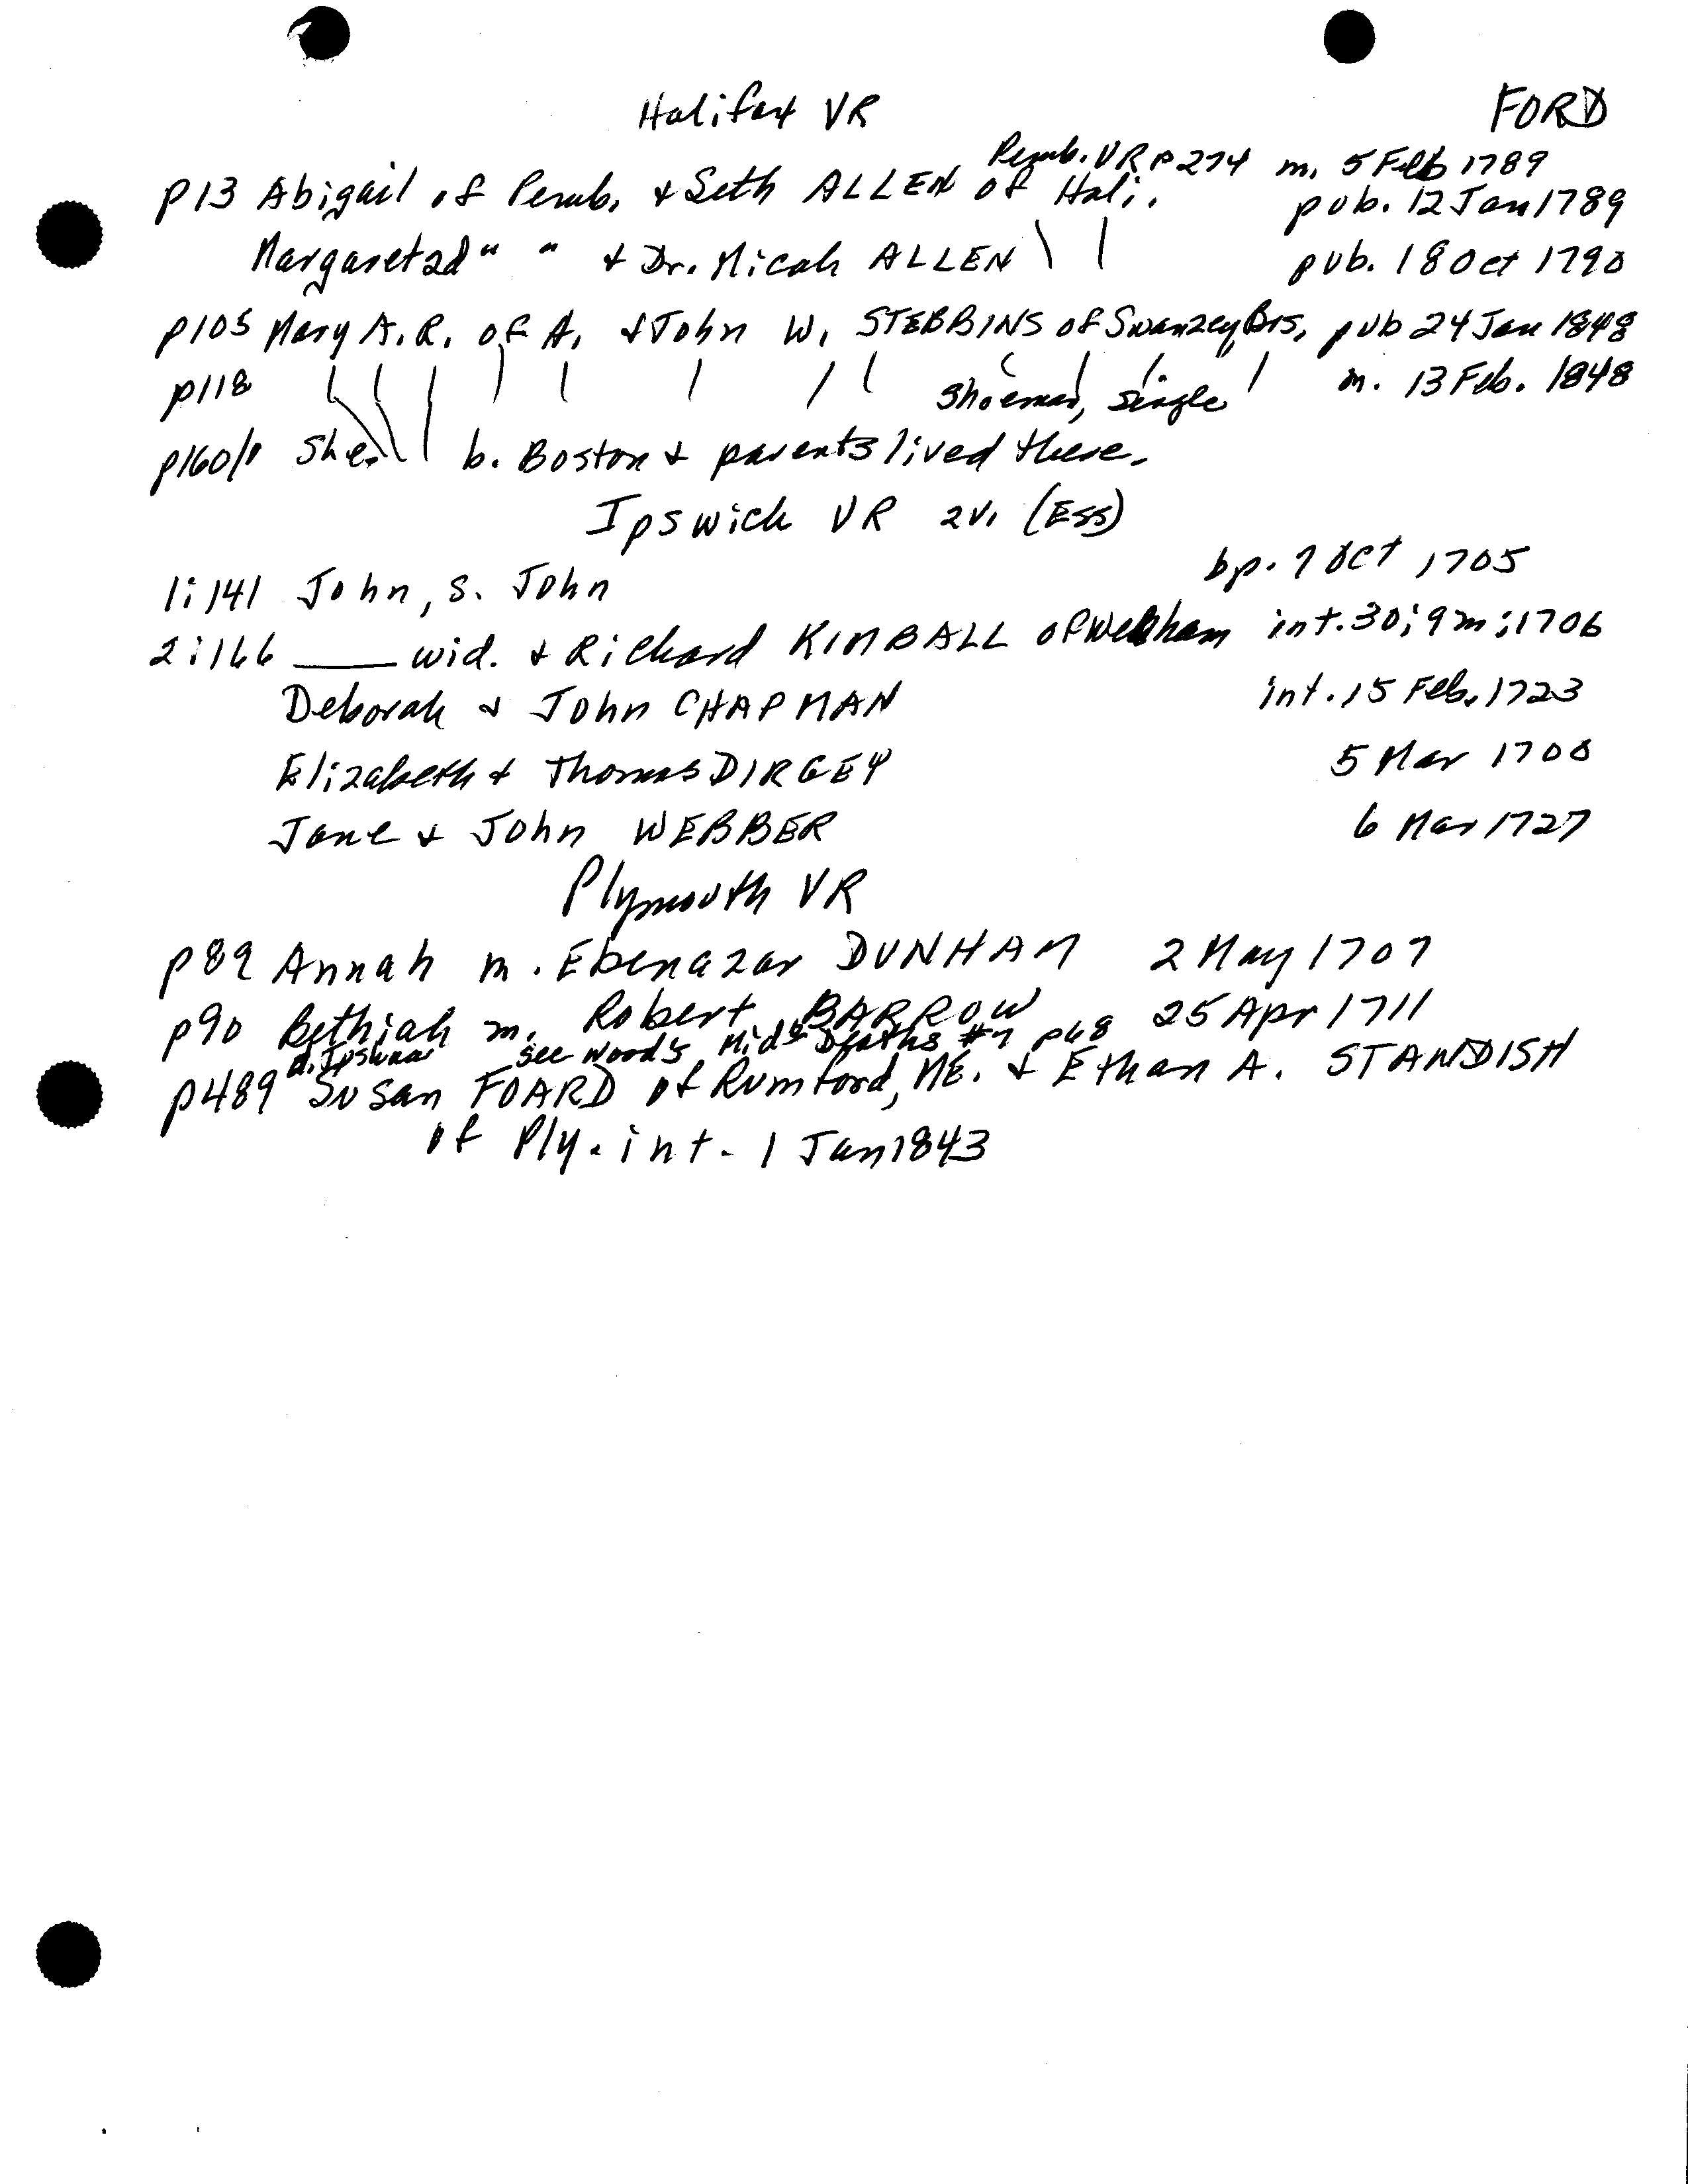 Halifax VR
FORD
Pemb. VR p 274 m. 5 Feb 1789
p13 Abigail of Pemb. & Seth ALLEN of Hali. pub. 12 Jan 1789
Margaret 2d " " & Dr. Micah ALLEN \ | pub. 18 Oct 1790
p105 Mary A. R. of A. & John W. STEBBINS of Swanzey pub 24 Jan 1848
p118 shoeman, single m. 13 Feb. 1848
p160/1 She b. Boston & parents lived there.
Ipswich VR 2v. (Ess)
1:141 John, s. John bp. 7 Oct 1705
2:166 ____ wid. & Richard KIMBALL of Wenham int. 30; 9m; 1706
Deborah & John CHAPMAN int. 15 Feb. 1723
Elizabeth & Thomas DIRGEY 5 Mar 1700
Jane & John WEBBER 6 Mar 1727
Plymouth VR
p89 Annah m. Ebenazar DUNHAM 2 May 1707
p90 Bethiah m. Robert BARROW 25 Apr 1711
see Wood's Mid. Deaths #7 p68
p489 Susan FOARD of Rumford, ME. & Ethan A. STANDISH
of Ply. int. 1 Jan 1843